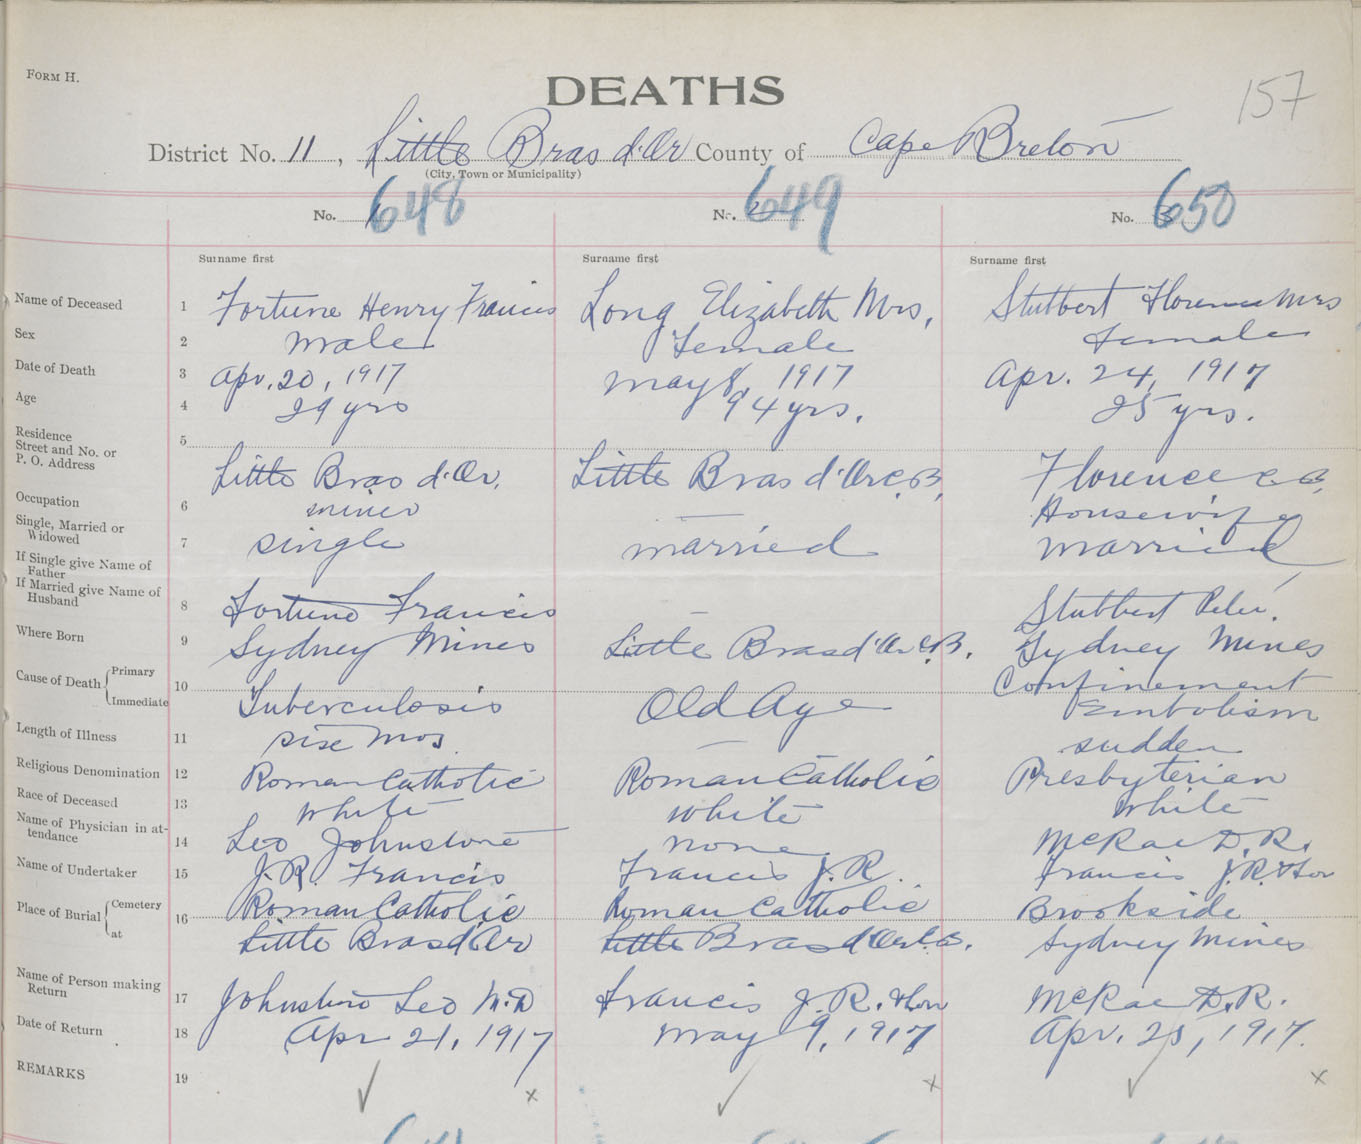 FORM H.
DEATHS
157
District No. 11, Little Bras d'Or County of Cape Breton
(City, Town or Municipality)
No. 648 No. 649 No. 650
Surname first Surname first Surname first
Name of Deceased 1 Fortune Henry Francis Long Elizabeth Mrs. Stubbert Florence Mrs
Sex 2 male Female Female
Date of Death 3 Apr. 20, 1917 May 8, 1917 Apr. 24, 1917
Age 4 29 yrs 94 yrs. 25 yrs.
Residence Street and No. or P. O. Address 5 Little Bras d'Or. Little Bras d'Or C.B. Florence C.B.
Occupation 6 miner — Housewife
Single, Married or Widowed 7 single married married
If Single give Name of Father If Married give Name of Husband 8 Fortune Francis — Stubbert Peter.
Where Born 9 Sydney Mines Little Bras d'Or C.B. Sydney Mines
Cause of Death Primary Immediate 10 Tuberculosis Old Age Confinement Embolism
Length of Illness 11 six mos. — sudden
Religious Denomination 12 Roman Catholic Roman Catholic Presbyterian
Race of Deceased 13 white white white
Name of Physician in attendance 14 Leo Johnstone none McRae D.R.
Name of Undertaker 15 J.R. Francis Francis J.R. Francis J.R. & Son
Place of Burial Cemetery at 16 Roman Catholic Little Bras d'Or Roman Catholic Little Bras d'Or C.B. Brookside Sydney Mines
Name of Person making Return 17 Johnstone Leo M.D Francis J.R. & Son McRae D.R.
Date of Return 18 Apr 21, 1917 May 9, 1917 Apr. 25, 1917.
REMARKS 19